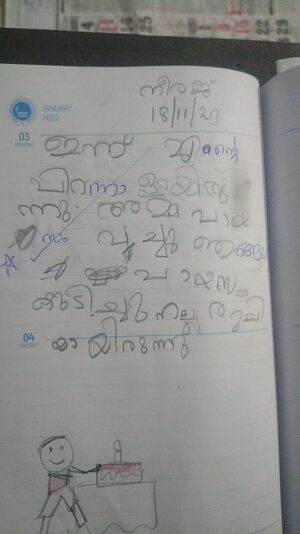 JANUARY
2022
നീരജ്
18/11/23
03
MONDAY
ഇന്ന് എന്റെ
പിറന്നാളായിരു
ന്നു. അമ്മ പായ
സം വച്ചു ഞങ്ങൾ
പായസം
കുടിച്ചു നല്ല രുചി
04
TUESDAY
യായിരുന്നു